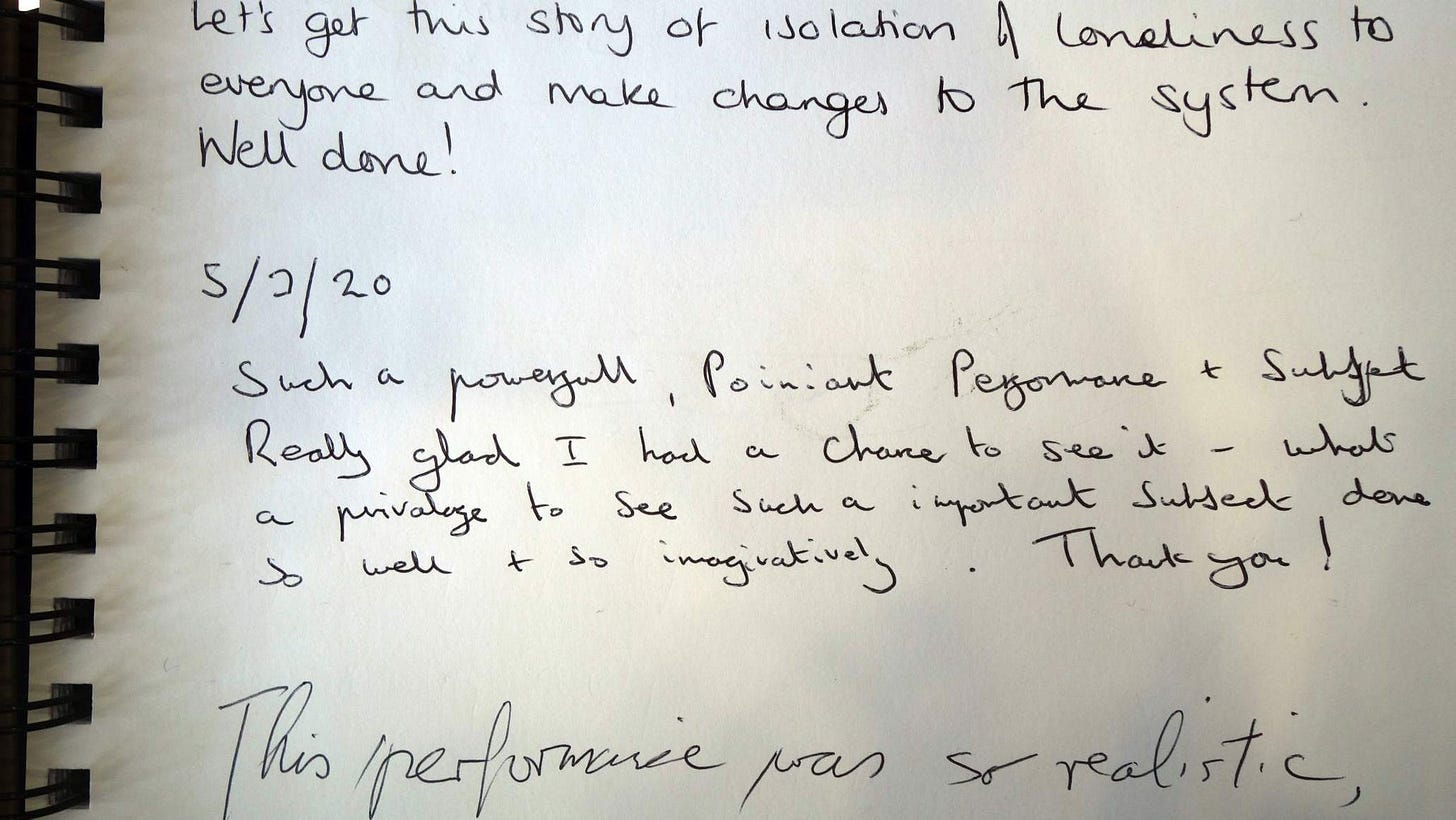 Let's get this story of isolation & loneliness to
everyone and make changes to the system.
Well done!
5/3/20
Such a powerfull, Poiniant Performance + Subject
Really glad I had a chance to see it - what
a privalege to see such a important subject done
so well + so imaginatively. Thank you!
This performance was so realistic,